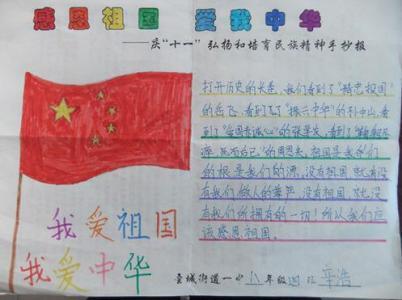 感恩祖国 爱我中华
——庆“十一”弘扬和培育民族精神手抄报
打开历史的大卷，我们看到了“精忠报国”
的岳飞，看到了“振兴中华”的孙中山，看
到了“
死而后已”的周恩来。祖国是我们
的根是我们的源，没有祖国就没
有我们做人的尊严，没有祖国就没
有我们所拥有的一切！所以我们应
该感恩祖国。
我爱祖国
我爱中华
街道一小 年级 班 辛浩